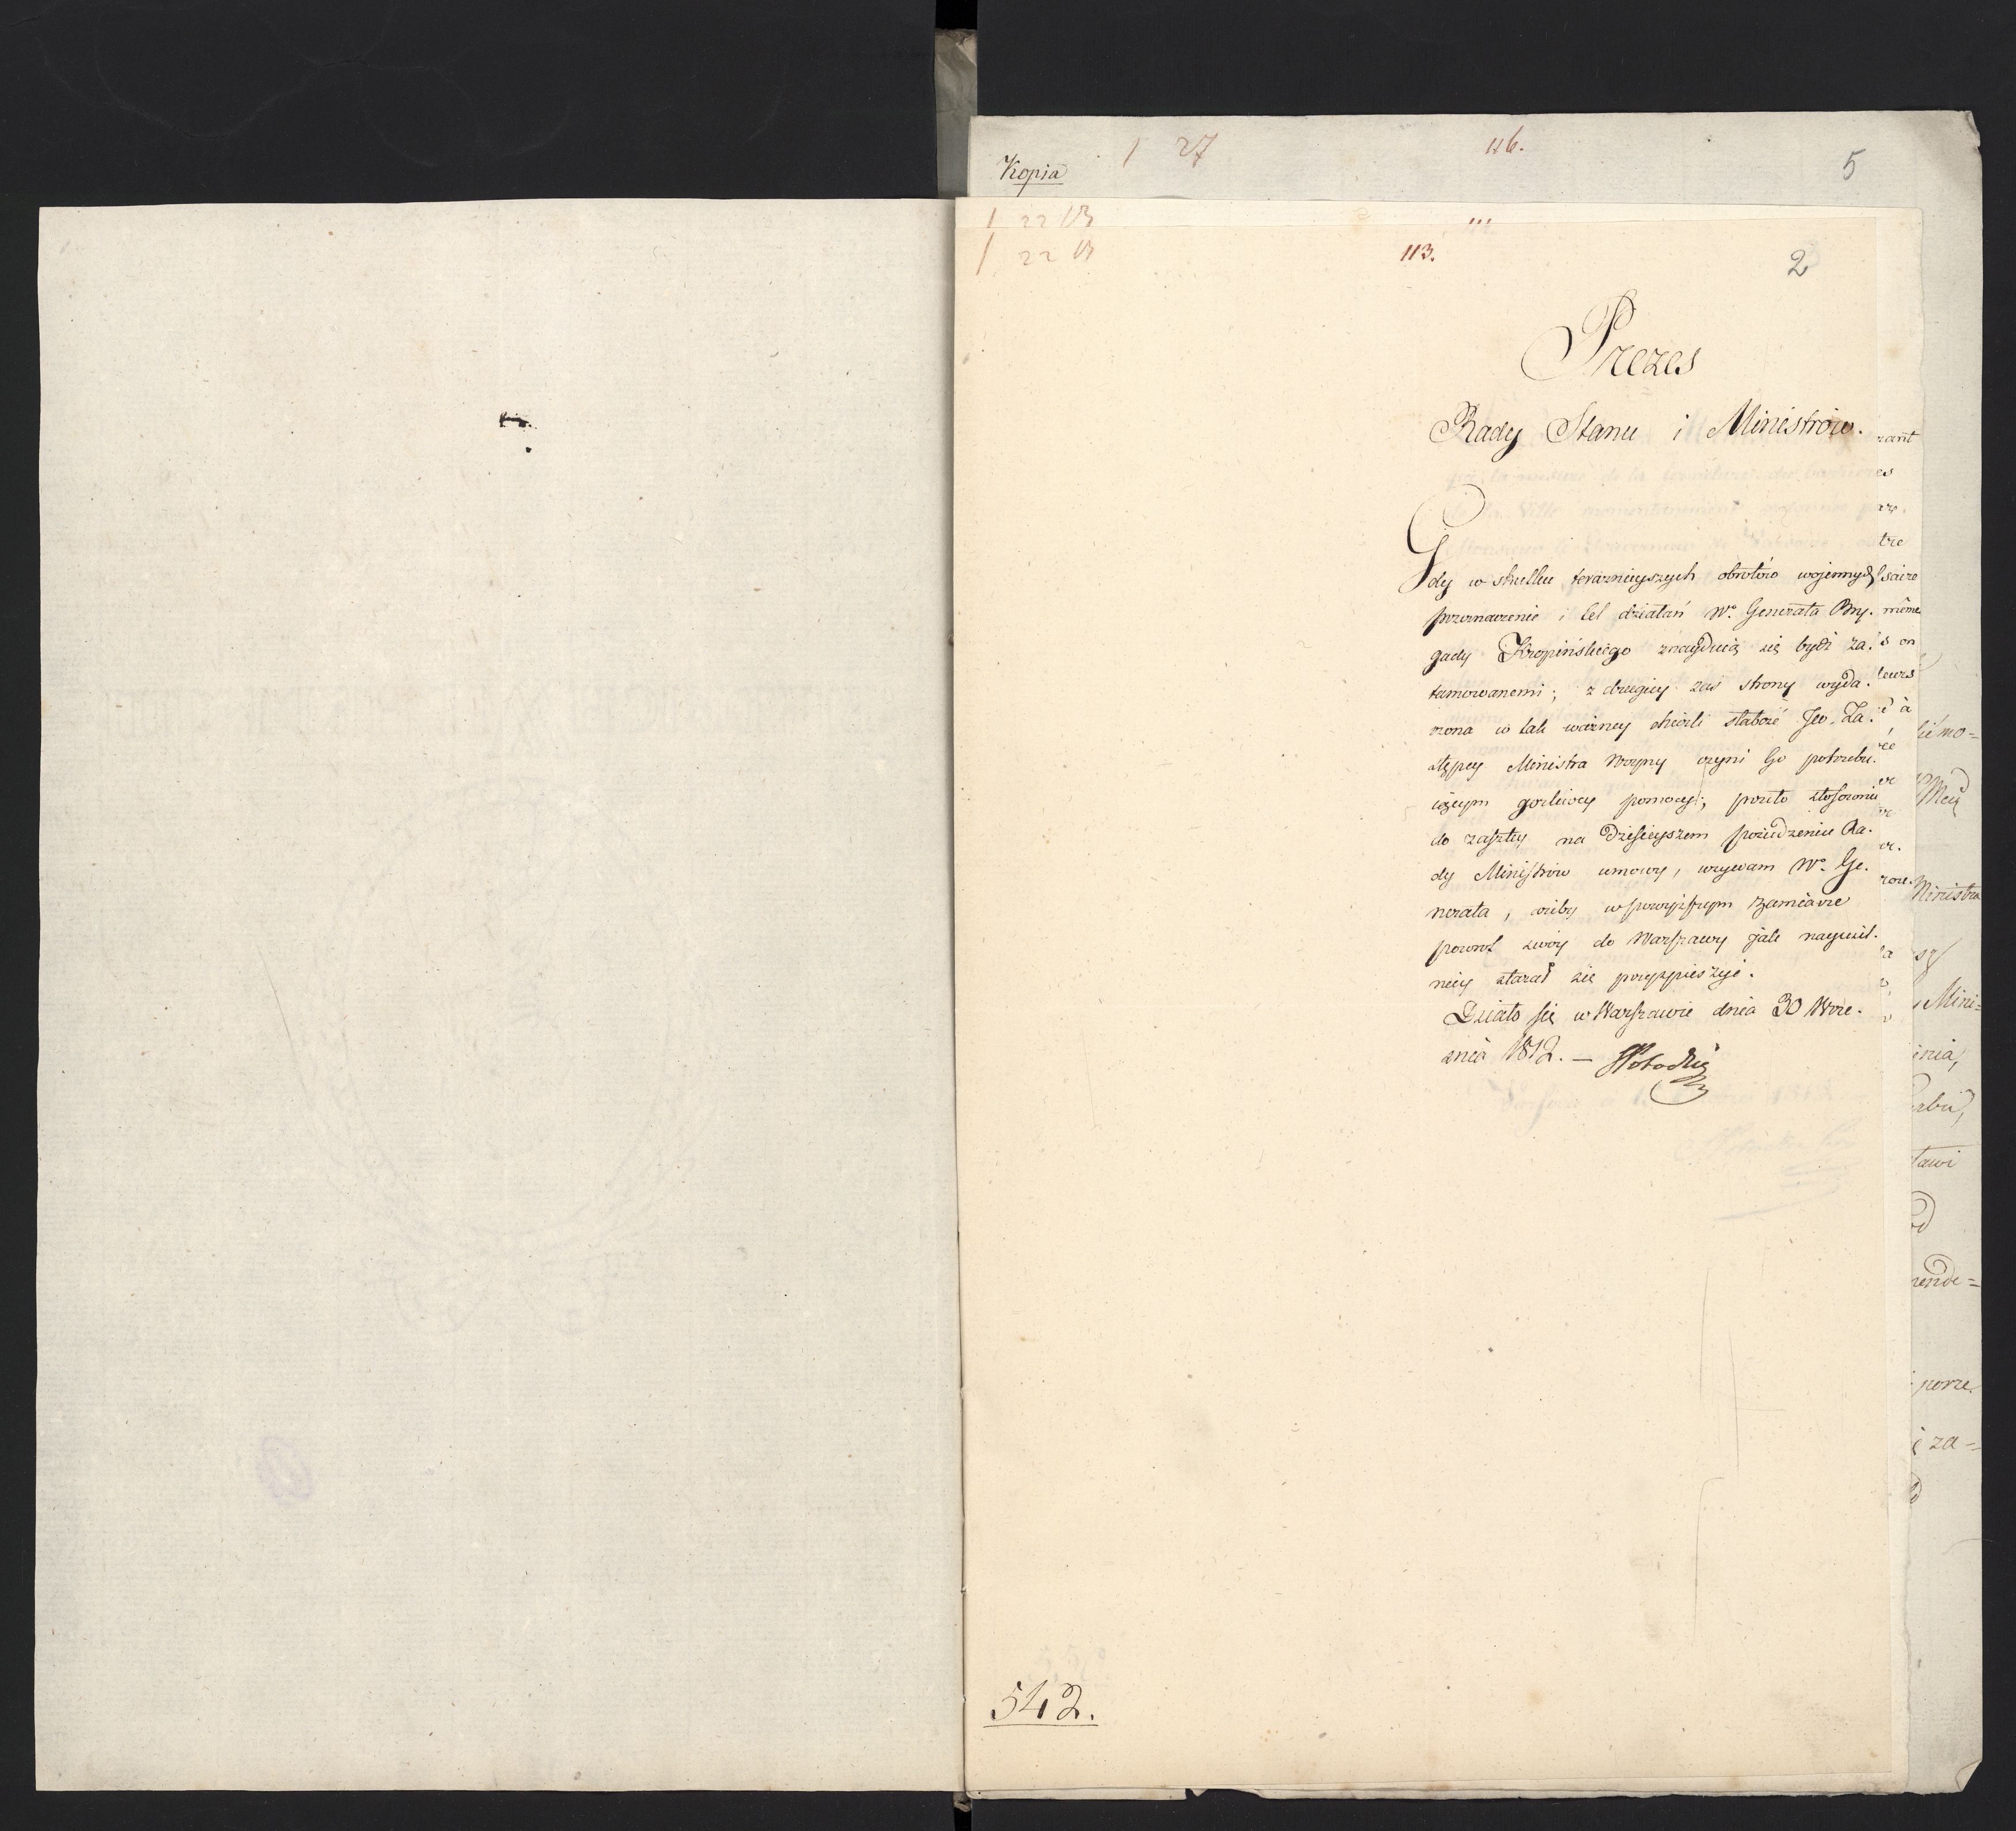 Kopia
1 27
116.
5
1 22 13
1 22 13
113.
2
Prezes
Rady Stanu i Ministrów.
Gdy w skutku teraznieyszych obrotów wojennych
przeznaczenie i cel działań Wo. Generała Bry-
gady Kropińskiego znayduią się bydź za-
tamowanemi; z drugiey zaś strony wyda-
rzona w tak ważney chwili słabość Jeo. Za-
stępcy Ministra Woyny czyni Go potrzebu-
iącym gorliwey pomocy; przeto stosownie
do zaszłey na dzisieyszem posiedzeniu Ra-
dy Ministrów umowy, wzywam Wo. Ge-
nerała, ażeby w powyższym zamiarze
powrot swóy do Warszawy jak nayusil-
niey starał się przyspieszyć.
Działo się w Warszawie dnia 30 Wrze-
śnia 1812. —
542.
zant
es
tre
saire
même
s on
leurs
é à
limo=
Mcią
Ministra
Mini=
inia,
tawi
rende=
porze
i za=